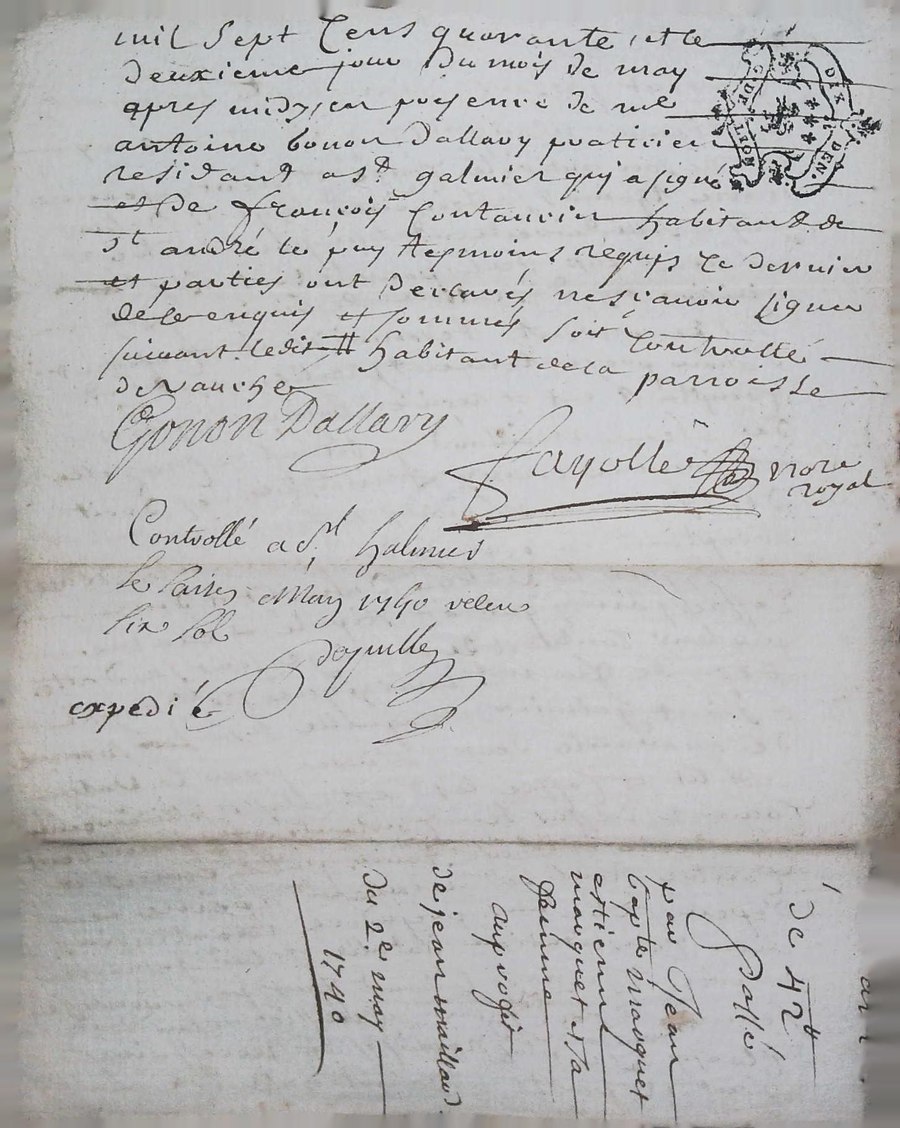 mil sept Cens quarante, et le
deuxieme jour du mois de may
apres midy, en presence de me
antoine Gonon Dallavy praticien
residant a st galmier qui a signé
et de françois habitant de
st andré le puy tesmoins requis ce dernier
et parties ont declarés ne sçavoir signer
de ce enquis et sommés soit Controllé
suivant ledit # habitant de la parroisse
de Vauche
Gonon Dallavy
fayolle nore
royal
Controllé a St Galmier
le may 1740 
six sol
expedié
de 42tt
passé
par Jean
bapte marquet
estienne
marquet et sa
femme
au profit
de jean maillard
du 2e may
1740
G. DE
DIX DEN.